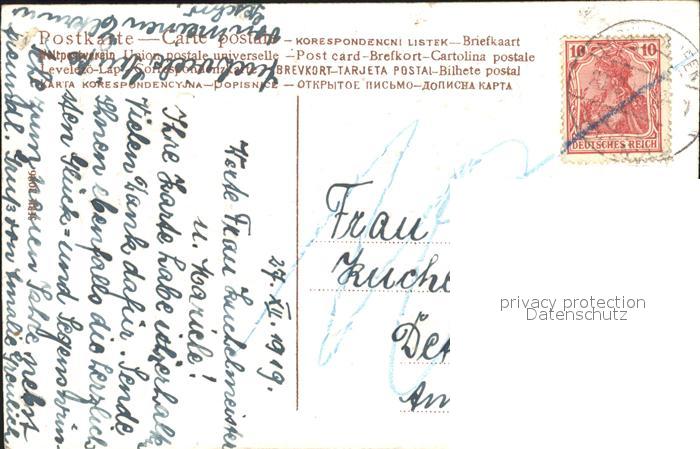 Postkarte — Carte postale — KORESPONDENCNI LISTEK — Briefkaart
Weltpostverein Union postale universelle — Post card — Brefkort — Cartolina postale
Levelező-Lap — BREVKORT — TARJETA POSTAL — Bilhete postal
KARTA KORESPONDENCYJNA — DOPISNICE — ОТКРЫТОЕ ПИСЬМО — ДОПИСНА КАРТА
10 10
DEUTSCHES REICH
27. XII. 1919.
Werte Frau Kuchelmeister
u. Mariele!
Ihre Karte habe ich erhalt.
Vielen Dank dafür. Sende
Ihnen ebenfalls die herzlich
sten Glück- und Segenswün-
che zum neuen Jahre nebst
freundl. Gruß von
Frau
Kuche
De
An
privacy protection
Datenschutz